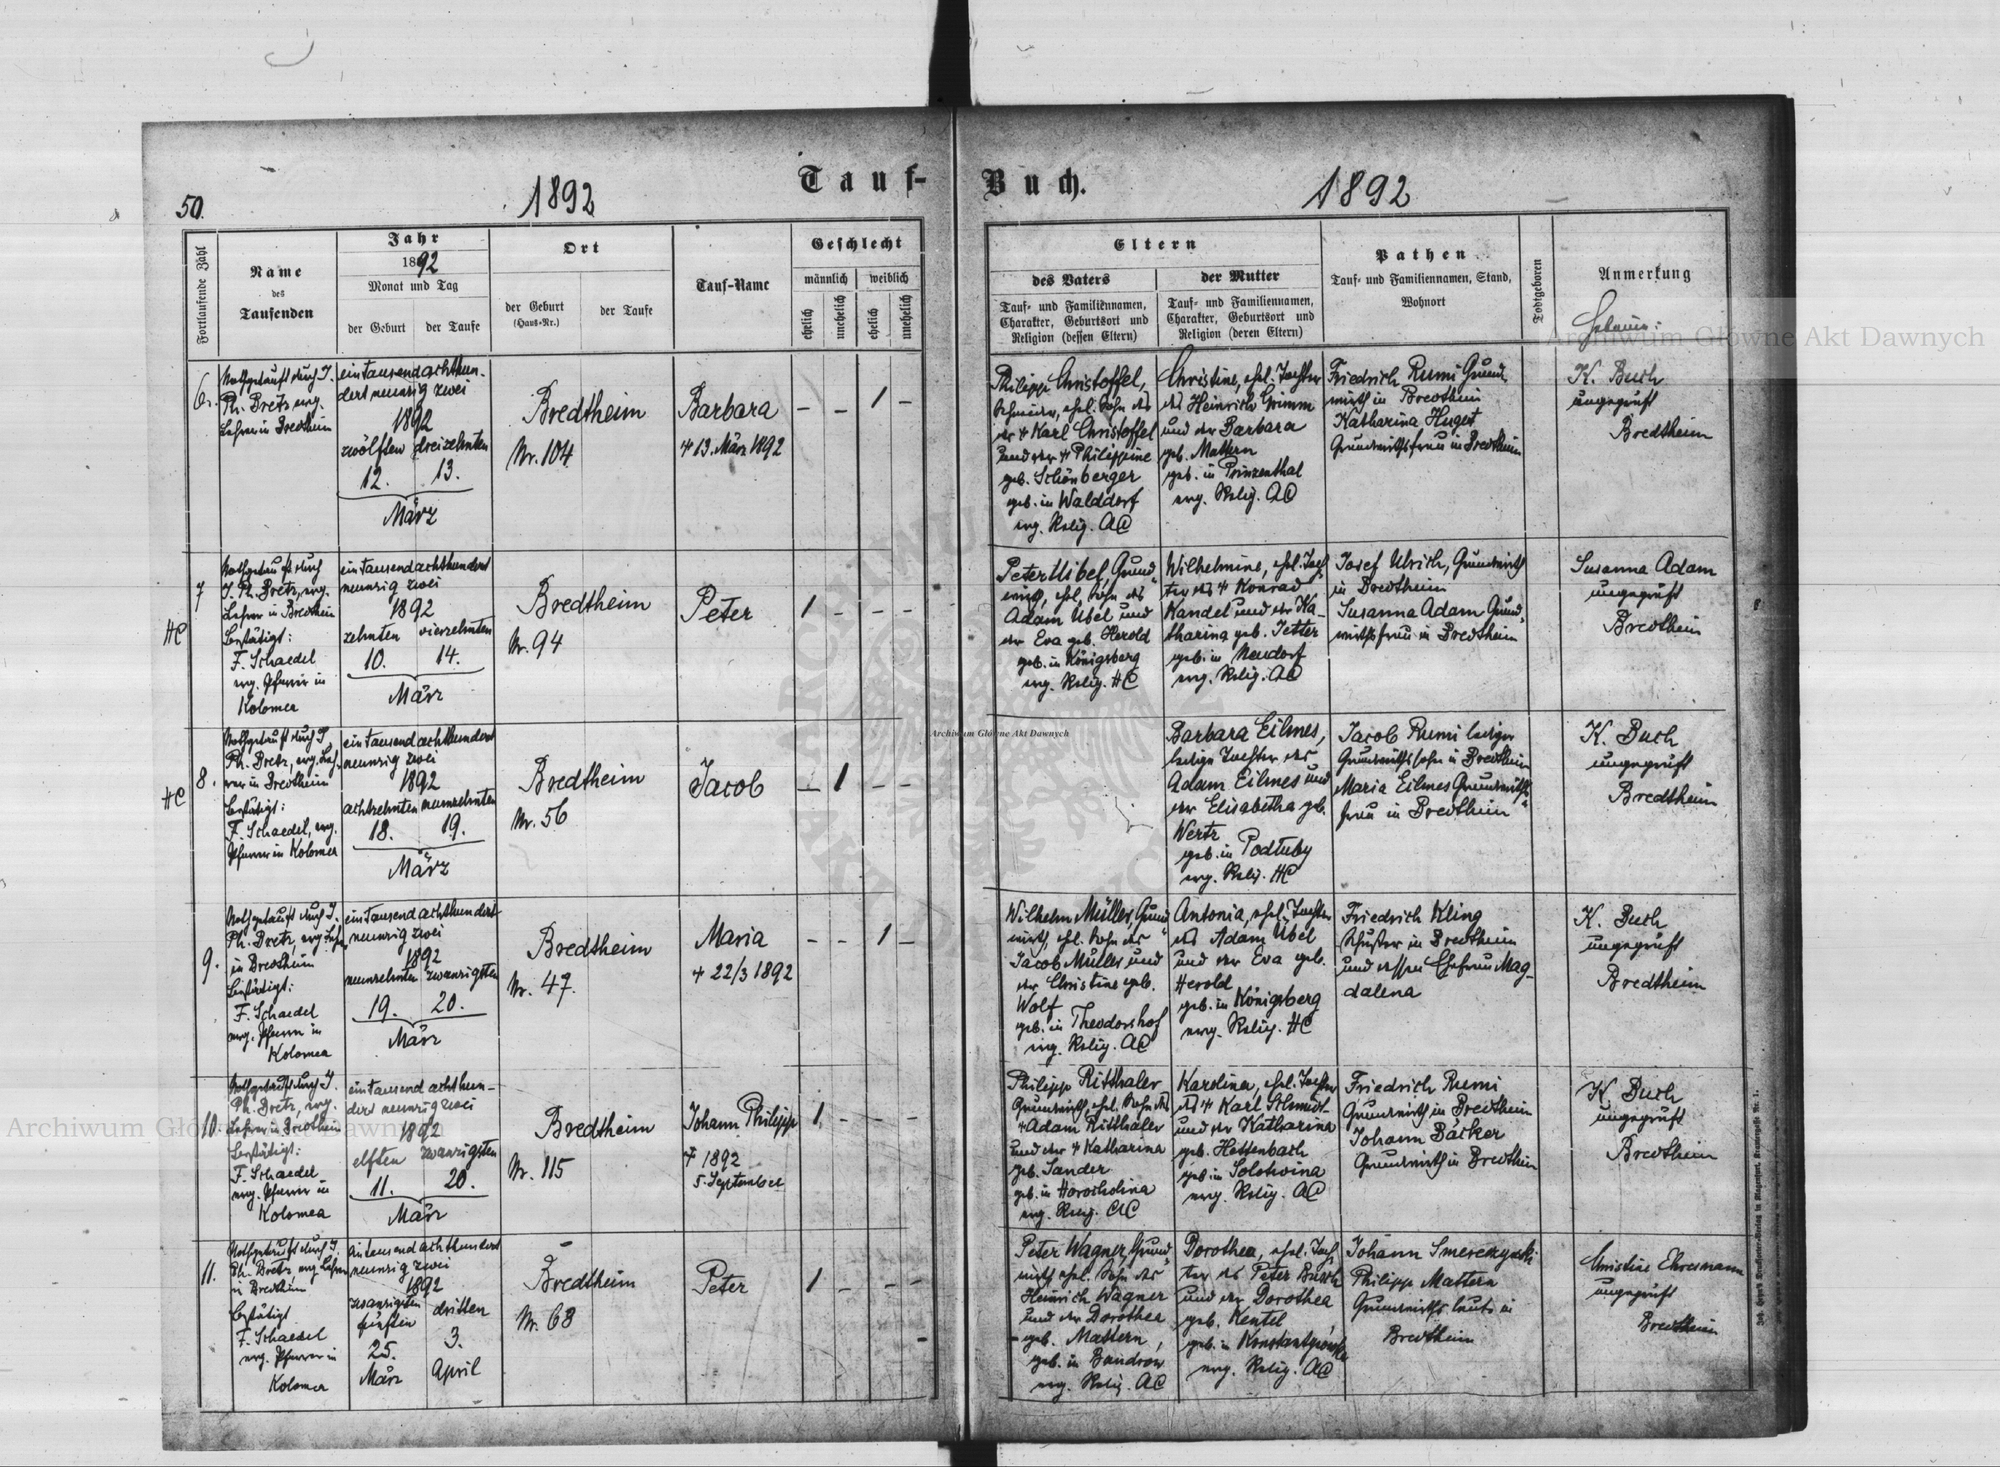 50.
1892
Tauf-
Buch.
1892
Fortlaufende Zahl
Name
des
Taufenden
Jahr
1892
Monat und Tag
der Geburt
der Taufe
Ort
der Geburt
(Haus-Nr.)
der Taufe
Tauf-Name
Geschlecht
männlich
weiblich
ehelich
unehelich
ehelich
unehelich
Eltern
des Vaters
Tauf- und Familiennamen,
Charakter, Geburtsort und
Religion (dessen Eltern)
der Mutter
Tauf- und Familiennamen,
Charakter, Geburtsort und
Religion (deren Eltern)
Pathen
Tauf- und Familiennamen, Stand,
Wohnort
Todtgeboren
Anmerkung
Hebamme:
6.
Nothgetauft durch J.
Ph. Bretz, evg.
Lehrer in Bredtheim
eintausendachthun-
dert neunzig zwei
1892
zwölften dreizehnten
12. 13.
März
Bredtheim
Nr. 104
Barbara
† 13. März 1892
– – 1 –
Philipp Christoffel,
Schneider, ehel. Sohn des
der † Karl Christoffel
und der † Philippine
geb. Schönberger
geb. in Walddorf
evg. Relig. AC
Christine, ehel. Tochter
des Heinrich Grimm
und der Barbara
geb. Mattern
geb. in Prinzenthal
evg. Relig. AC
Friedrich Rumi Grund-
wirth in Bredtheim
Katharina Huget
Grundwirthsfrau in Bredtheim
K. Buch
ungeprüft
Bredtheim
7
HC
Nothgetauft durch
J. Ph. Bretz, evg.
Lehrer in Bredtheim
Bestätigt:
F. Schaedel
evg. Pfarrer in
Kolomea
eintausendachthundert
neunzig zwei
1892
zehnten vierzehnten
10. 14.
März
Bredtheim
Nr. 94
Peter
1 – – –
Peter Uibel, Grund-
wirth, ehel. Sohn des
Adam Ubel und
der Eva geb. Herold
geb. in Königsberg
evg. Relig. HC
Wilhelmine, ehel. Toch-
ter des † Konrad
Kandel und der Ka-
tharina geb. Jetter
geb. in Neudorf
evg. Relig. AC
Josef Ulrich, Grundwirth
in Bredtheim
Susanna Adam Grund-
wirthsfrau in Bredtheim
Susanna Adam
ungeprüft
Bredtheim
8.
HC
Nothgetauft durch J.
Ph. Bretz, evg. Leh-
rer in Bredtheim
Bestätigt:
F. Schaedel, evg.
Pfarrer in Kolomea
eintausendachthundert
neunzig zwei
1892
achtzehnten neunzehnten
18. 19.
März
Bredtheim
Nr. 56
Jacob
– 1 – –
Barbara Eilmes,
ledige Tochter des
Adam Eilmes und
der Elisabetha geb.
Wertz
geb. in Podłuby
evg. Relig. HC
Jacob Rumi lediger
Grundwirthssohn in Bredtheim
Maria Eilmes Grundwirths-
frau in Bredtheim
K. Buch
ungeprüft
Bredtheim
9.
Nothgetauft durch J.
Ph. Bretz, evg. Lehrer
in Bredtheim
Bestätigt:
F. Schaedel
evg. Pfarrer in
Kolomea
eintausendachthundert
neunzig zwei
1892
neunzehnten zwanzigsten
19. 20.
März
Bredtheim
Nr. 47.
Maria
† 22/3 1892
– – 1 –
Wilhelm Müller, Grund-
wirth, ehel. Sohn des
Jacob Müller und
der Christine geb.
Wolf
geb. in Theodorshof
evg. Relig. AC
Antonia, ehel. Tochter
des Adam Ubel
und der Eva geb.
Herold
geb. in Königsberg
evg. Relig. HC
Friedrich Kling
Schuster in Bredtheim
und dessen Ehefrau Mag-
dalena
K. Buch
ungeprüft
Bredtheim
10.
Nothgetauft durch J.
Ph. Bretz, evg.
Lehrer in Bredtheim
Bestätigt:
F. Schaedel
evg. Pfarrer in
Kolomea
eintausend achthun-
dert neunzig zwei
1892
elften zwanzigsten
11. 20.
März
Bredtheim
Nr. 115
Johann Philipp
† 1892
5. September
1 – – –
Philipp Ritthaler
Grundwirth, ehel. Sohn des
† Adam Ritthaler
und der † Katharina
geb. Sander
geb. in Horocholina
evg. Relig. AC
Karolina, ehel. Tochter
des † Karl Schmidt
und der Katharina
geb. Hottenbach
geb. in Solotwina
evg. Relig. AC
Friedrich Rumi
Grundwirth in Bredtheim
Johann Bäcker
Grundwirth in Bredtheim
K. Buch
ungeprüft
Bredtheim
11.
Nothgetauft durch J.
Ph. Bretz evg. Lehrer
in Bredtheim
Bestätigt
F. Schaedel
evg. Pfarrer in
Kolomea
eintausend achthundert
neunzig zwei
1892
zwanzigsten dritten
fünften
25. 3.
März April
Bredtheim
Nr. 68
Peter
1 – – –
Peter Wagner, Grund-
wirth ehel. Sohn des
Heinrich Wagner
und der Dorothea
geb. Mattern,
geb. in Bandrow
evg. Relig. AC
Dorothea, ehel. Toch-
ter des Peter Busch
und der Dorothea
geb. Kentel
geb. in
evg. Relig. AC
Johann Smereczynski
Philipp Mattern
Grundwirthsleute in
Bredtheim
Christine Ehresmann
ungeprüft
Bredtheim
Archiwum Główne Akt Dawnych
Archiwum Główne Akt Dawnych
Archiwum Główne Akt Dawnych